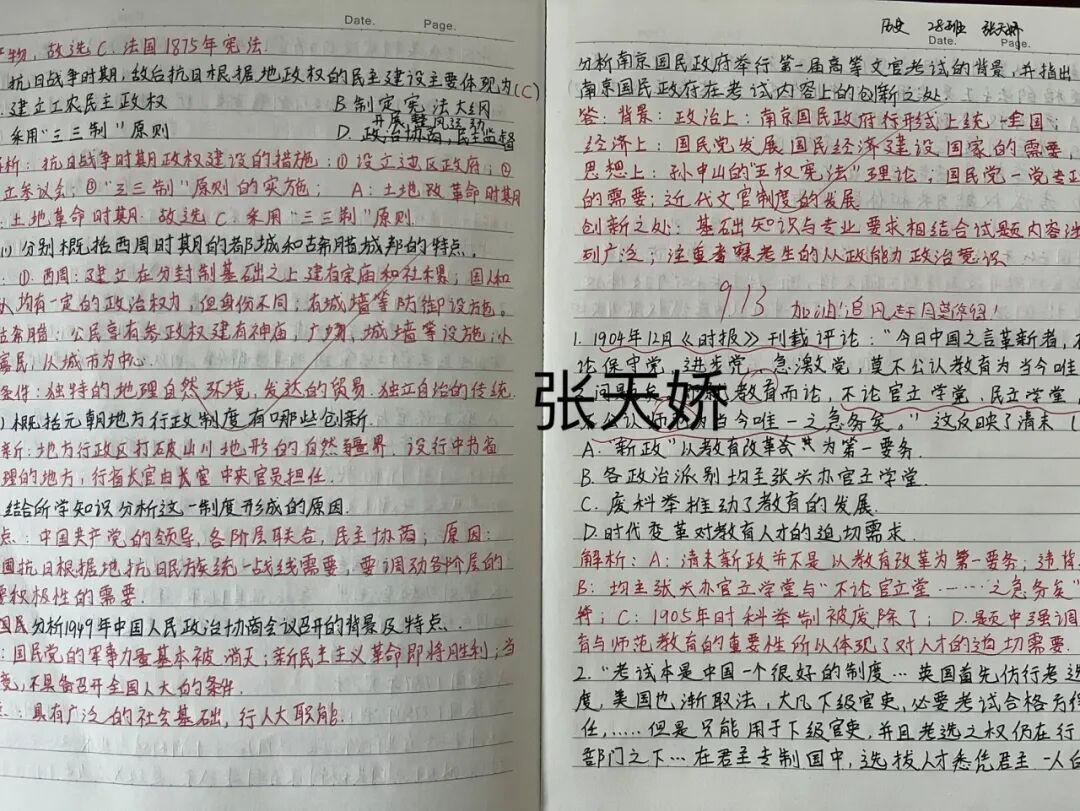 Date. Page.
产物, 故选C.法国1875年宪法.
抗日战争时期,敌后抗日根据地政权的民主建设主要体现为(C)
建立工农民主政权 B 制定宪法大纲
开展整风运动
采用"三三制"原则 D. 政治协商,民主监督
析: 抗日战争时期政权建设的措施:① 设立边区政府;②
立参议会;③"三三制"原则的实施; A:土地改革命时期
土地革命时期. 故选C.采用"三三制"原则.
(1) 分别概括西周时期的都城和古希腊城邦的特点.
①.西周:建立在分封制基础之上建有宗庙和社稷;国人和
人均有一定的政治权力,但身份不同;有城墙等防御设施。
古希腊:公民享有参政权建有神庙,广场,城墙等设施;小
寡民,以城市为中心.
条件:独特的地理自然环境,发达的贸易.独立自治的传统.
)概括元朝地方行政制度有哪些创新.
新:地方行政区打破山川地形的自然疆界.设行中书省
理的地方,行省长官由 中央官员担任.
结合所学知识分析这一制度形成的原因.
点:中国共产党的领导,各阶层联合,民主协商;原因:
固抗日根据地,抗日民族统一战线需要,要调动各阶层的
积极性的需要.
分析1949年中国人民政治协商会议召开的背景及特点.
:国民党的军事力量基本被消灭;新民主主义革命即将胜利;当
,不具备召开全国人大的条件.
:具有广泛的社会基础,行人大职能.
历史 28班 张天娇
Date. Page.
分析南京国民政府举行第一届高等文官考试的背景,并指出
南京国民政府在考试内容上的创新之处.
答:背景:政治上:南京国民政府形式上统一全国;
经济上:国民党发展国民经济建设国家的需要,
思想上:孙中山的"五权宪法"理论;国民党一党专政
的需要;近代文官制度的发展
创新之处:基础知识与专业要求相结合试题内容涉
列广泛;注重考察考生的从政能力政治意识
9/13 加油!追风赶月莫停留!
1. 1904年12月《时报》刊载评论:"今日中国之言革新者,
论保守党,进步党,急激党,莫不公认教育为当今唯
教育而论,不论官立学堂,民立学堂,
当今唯一之急务矣。"这反映了清末(
张天娇
A."新政"以教育改革 为第一要务.
B.各政治派别均主张兴办官立学堂.
C.废科举推动了教育的发展.
D.时代变革对教育人才的迫切需求.
解析:A:清末新政并不是以教育改革为第一要务;违背
B:均主张兴办官立学堂与"不论官立堂……之急务矣"
符;C:1905年时科举制被废除了;D.题中强调
育与师范教育的重要性所以体现了对人才的迫切需要.
2."考试本是中国一个很好的制度…英国首先仿行考选
度,美国也渐取法,大凡下级官吏,必要考试合格方得
任,……但是只能用于下级官吏,并且考选之权仍在行
部门之下…在君主专制国中,选拔人才悉凭君主一人